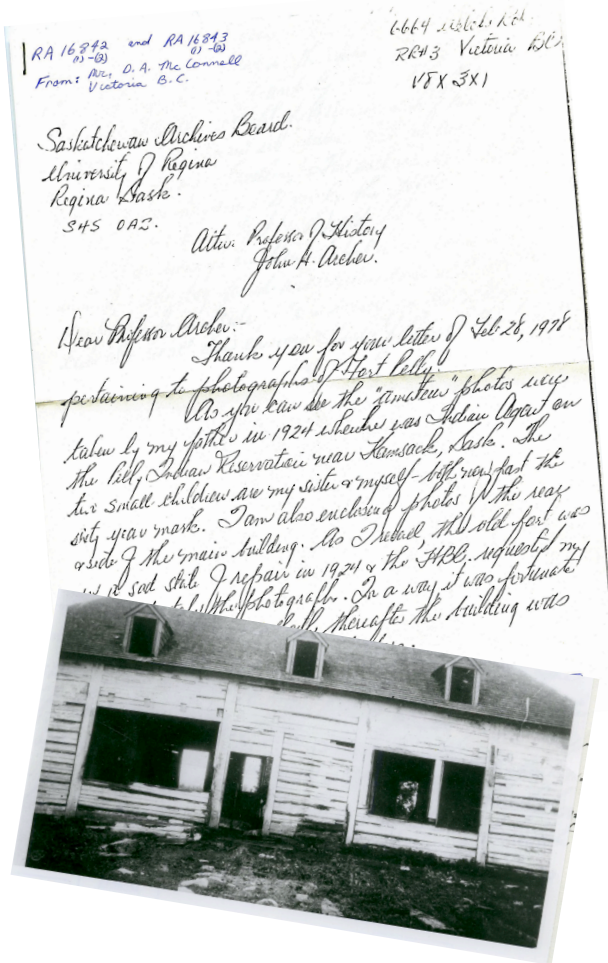 RA 16842 and RA 16843
(1)-(3) (1)-(2)
From: Mr. D. A. McConnell
Victoria B.C.
6664
RR#3 Victoria BC
V8X 3X1
Saskatchewan Archives Board.
University of Regina
Regina Sask.
S4S 0A2.
Attn: Professor of History
John H. Archer.
Dear Professor Archer:-
Thank you for your letter of Feb 28, 1978
pertaining to photographs of Fort Pelly.
As you can see the "amateur" photos were
taken by my father in 1924 when he was Indian Agent on
the Pelly Indian Reservation near Kamsack, Sask. The
two small children are my sister & myself - both now past the
sixty year mark. I am also enclosing photos of the rear
& side of the main building. As I recall, the old fort was
in a sad state of repair in 1924 & the HBC. requested my
the photographs. In a way it was fortunate
thereafter the building was